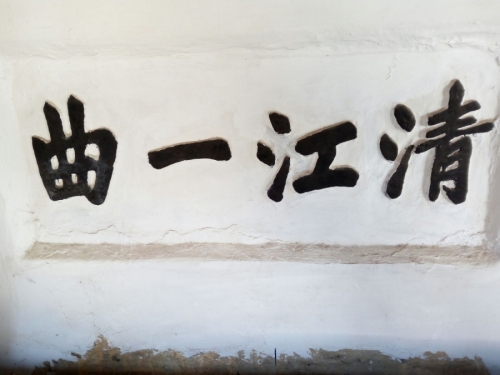 清江一曲